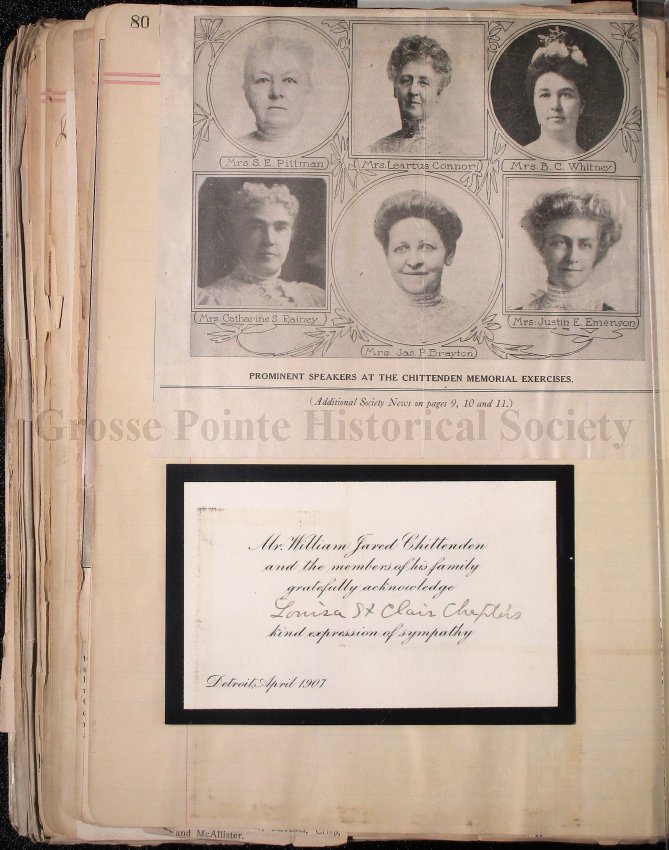 80
Mrs. S. E. Pittman
Mrs. Leartus Connor
Mrs. B. C. Whitney
Mrs. Catharine S. Rainey.
Mrs. Jas. P. Brayton
Mrs. Justin E. Emerson
PROMINENT SPEAKERS AT THE CHITTENDEN MEMORIAL EXERCISES.
(Additional Society News on pages 9, 10 and 11.)
Grosse Pointe Historical Society
Mr. William Jared Chittenden
and the members of his family
gratefully acknowledge
Louisa St Clair Chapter's
kind expression of sympathy
Detroit, April 1907
Crisp,
and McAllister.